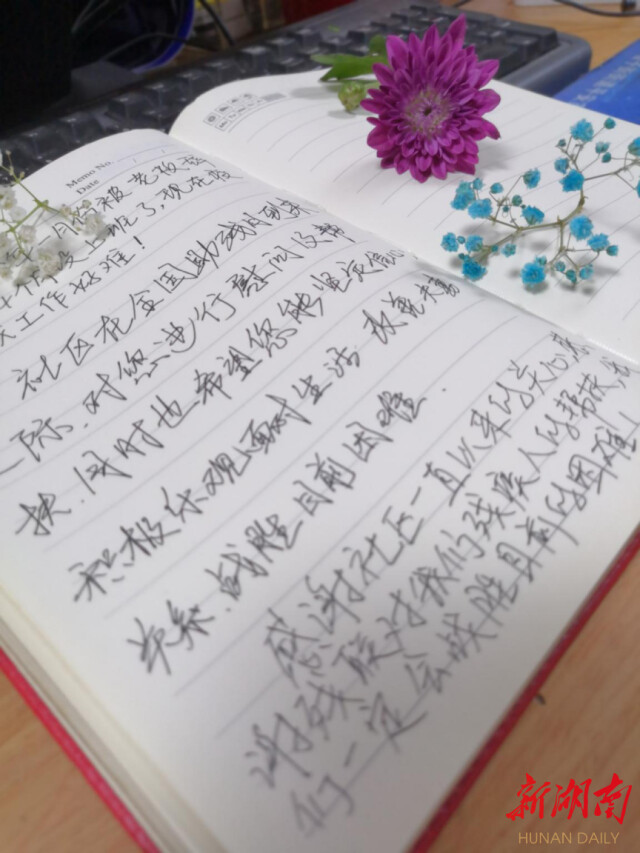 Memo No.
Date
年一月份被老板
月没上班了,现在
工作好难!
社区在全国助残月到来
之际,对您进行慰问及帮
扶,同时也希望您能坚定信心
积极乐观面对生活
关系,战胜目前困难.
感谢社区一直以来的关心感
谢残联对我们残疾人的帮扶,我
们一定会战胜目前的困难!
新湖南
HUNAN DAILY